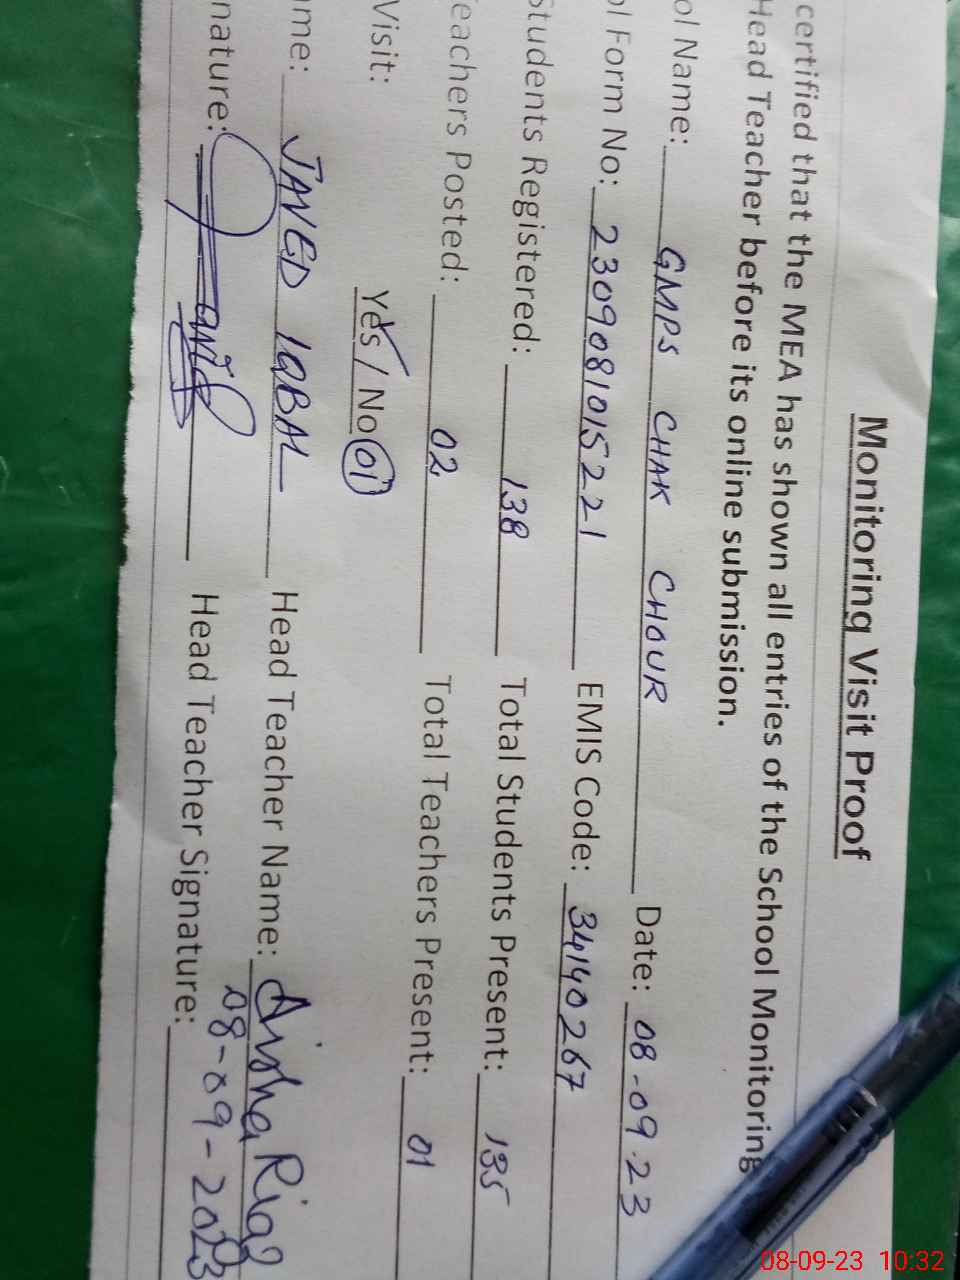 Monitoring Visit Proof
certified that the MEA has shown all entries of the School Monitoring
Head Teacher before its online submission.
ol Name: GMPS CHAK CHOUR Date: 08-09.23
ol Form No: 2309081015221 EMIS Code: 34140267
Students Registered: 138 Total Students Present: 135
eachers Posted: 02 Total Teachers Present: 01
Visit: Yes / No 01
me: JAVED IQBAL Head Teacher Name: Aisha Riaz
nature: Head Teacher Signature: 08-09-2023
08-09-23 10:32